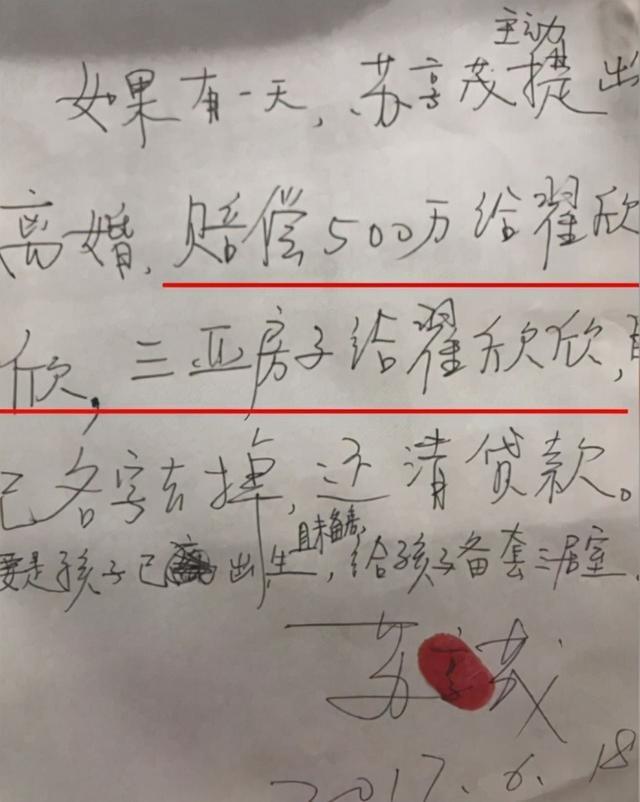 主动
如果有一天,苏享茂提出
离婚,赔偿500万给翟欣
欣,三亚房子给翟欣欣,
己名字去掉,还清贷款。
且未备
要是孩子已出生,给孩子备套三居室.
苏享茂
2017.6.18